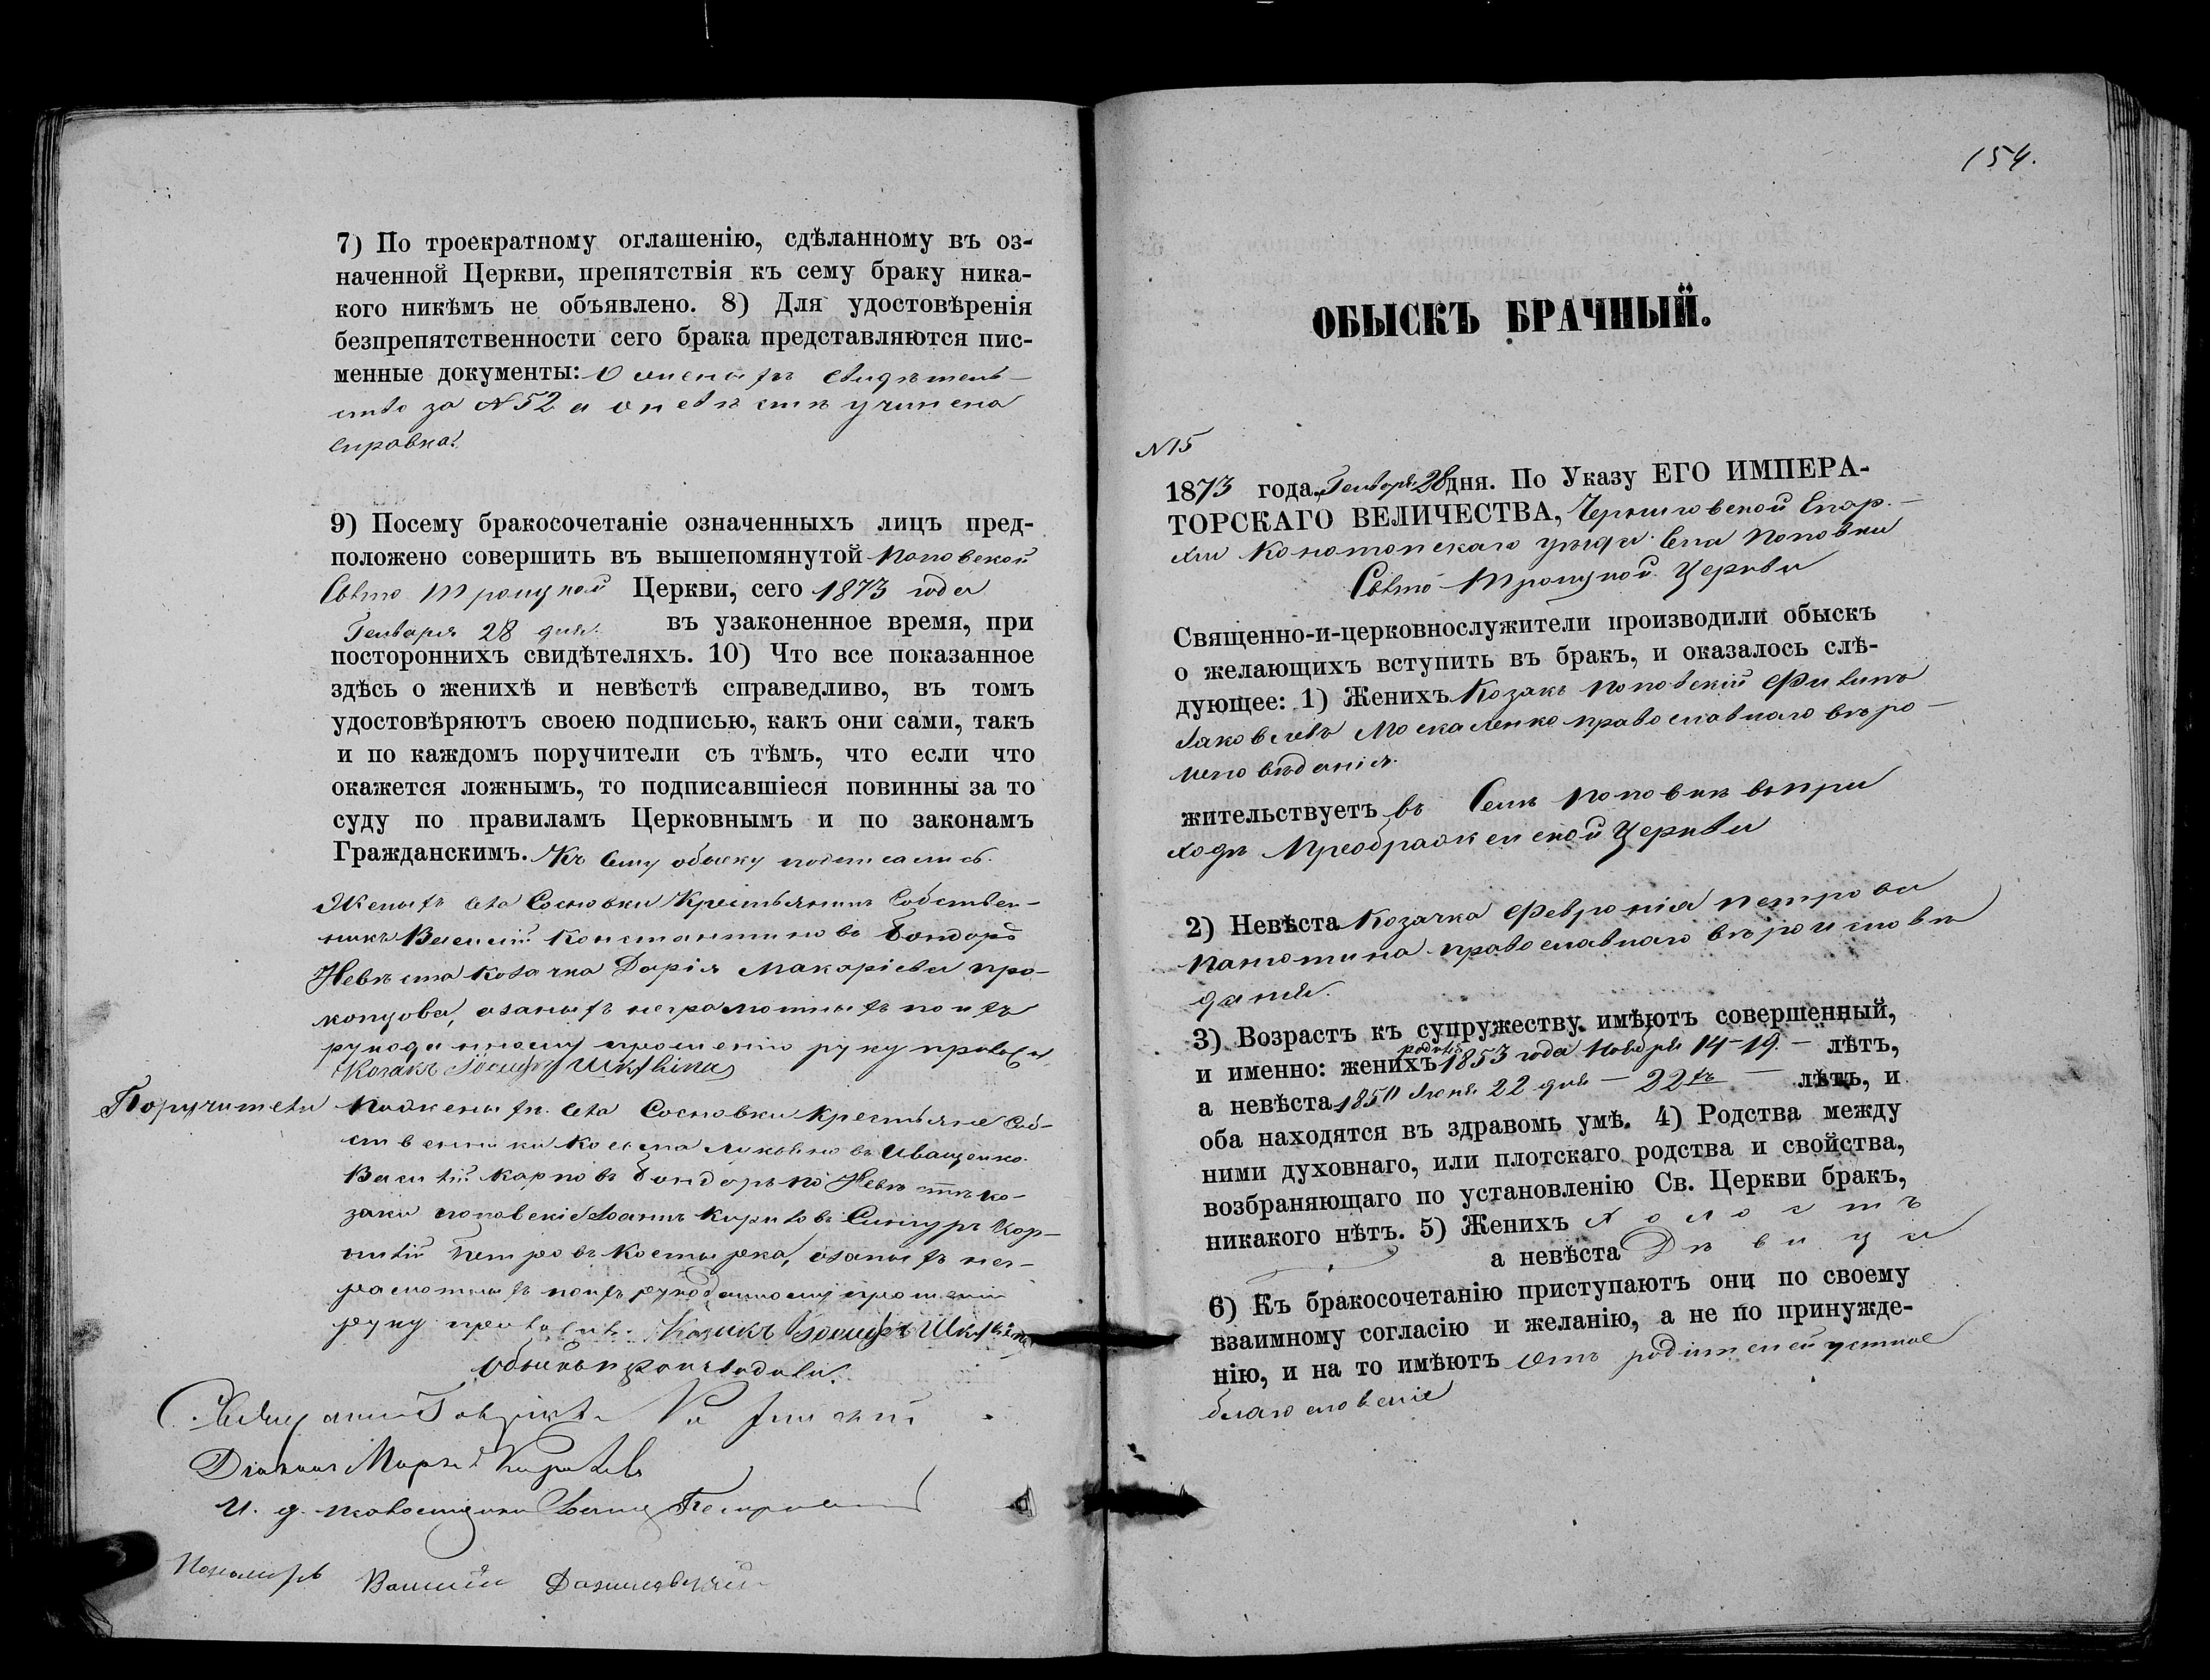 7) По троекратному оглашенію, сдѣланному въ оз-
наченной Церкви, препятствія къ сему браку ника-
кого никѣмъ не объявлено. 8) Для удостовѣренія
безпрепятственности сего брака представляются пис-
менные документы: О женихѣ свидѣтель-
ство за N 52 а о невѣстѣ учинена
справка.
9) Посему бракосочетаніе означенныхъ лицъ пред-
положено совершить въ вышепомянутой Поповской
Свято Троицкой Церкви, сего 1873 года
Генваря 28 дня. въ узаконенное время, при
постороннихъ свидѣтеляхъ. 10) Что все показанное
здѣсь о женихѣ и невѣстѣ справедливо, въ томъ
удостовѣряютъ своею подписью, какъ они сами, такъ
и по каждомъ поручители съ тѣмъ, что если что
окажется ложнымъ, то подписавшіеся повинны за то
суду по правиламъ Церковнымъ и по законамъ
Гражданскимъ. Къ сему обыску подписались.
Женихъ села Сосновки Крестьянинъ Собствен-
никъ Василій Константиновъ Бондарь
Невѣста козачка Дарія Макаріева Про-
копцова, а за ныхъ неграмотныхъ по ихъ
рукоданному прошенію руку приложил
Козакъ Іосифъ
Поручители По женихѣ села Сосновки Крестьяне Соб-
ственники Косьма Лукьяновъ Иващенко.
Василій Карповъ Бондарь по Невѣстѣ ко-
заки поповскіе Іоаннъ Кириловъ Синчуръ Кор-
нилій Петровъ Костырка, а за ныхъ нег-
рамотныхъ по ихъ рукоданному прошенію
руку приложилъ. Козакъ Іосифъ
Обыскъ производили.
Священникъ Гавріилъ
Діаконъ Марко Кириловъ
И. д. псаломщика
Пономарь Василій Данилевскій
154.
ОБЫСКЪ БРАЧНЫЙ.
N 15
1873 года, Генваря 28 дня. По Указу ЕГО ИМПЕРА-
ТОРСКАГО ВЕЛИЧЕСТВА, Черниговской Епар-
хіи Конотопскаго уѣзда Села Поповки
Свято-Троицкой Церкви
Священно-и-церковнослужители производили обыскъ
о желающихъ вступить въ бракъ, и оказалось слѣ-
дующее: 1) Женихъ Козакъ Поповскій Филипъ
Іаковлевъ Москаленко православнаго вѣро-
исповѣданія.
жительствуетъ въ Селѣ Поповкѣ въ при
ходѣ Преображенской Церкви
2) Невѣста Козачка Февронія Петрова
Панютина православнаго вѣроисповѣ
данія.
3) Возрастъ къ супружеству имѣютъ совершенный,
и именно: женихъ родился 1853 года Ноября 14 - 19. - лѣтъ,
а невѣста 1850 Іюня 22 дня - 22хъ - лѣтъ, и
оба находятся въ здравомъ умѣ. 4) Родства между
ними духовнаго, или плотскаго родства и свойства,
возбраняющаго по установленію Св. Церкви бракъ,
никакого нѣтъ. 5) Женихъ Холостъ
а невѣста Дѣвица
6) Къ бракосочетанію приступаютъ они по своему
взаимному согласію и желанію, а не по принужде-
нію, и на то имѣютъ отъ родителей устное
благословеніе